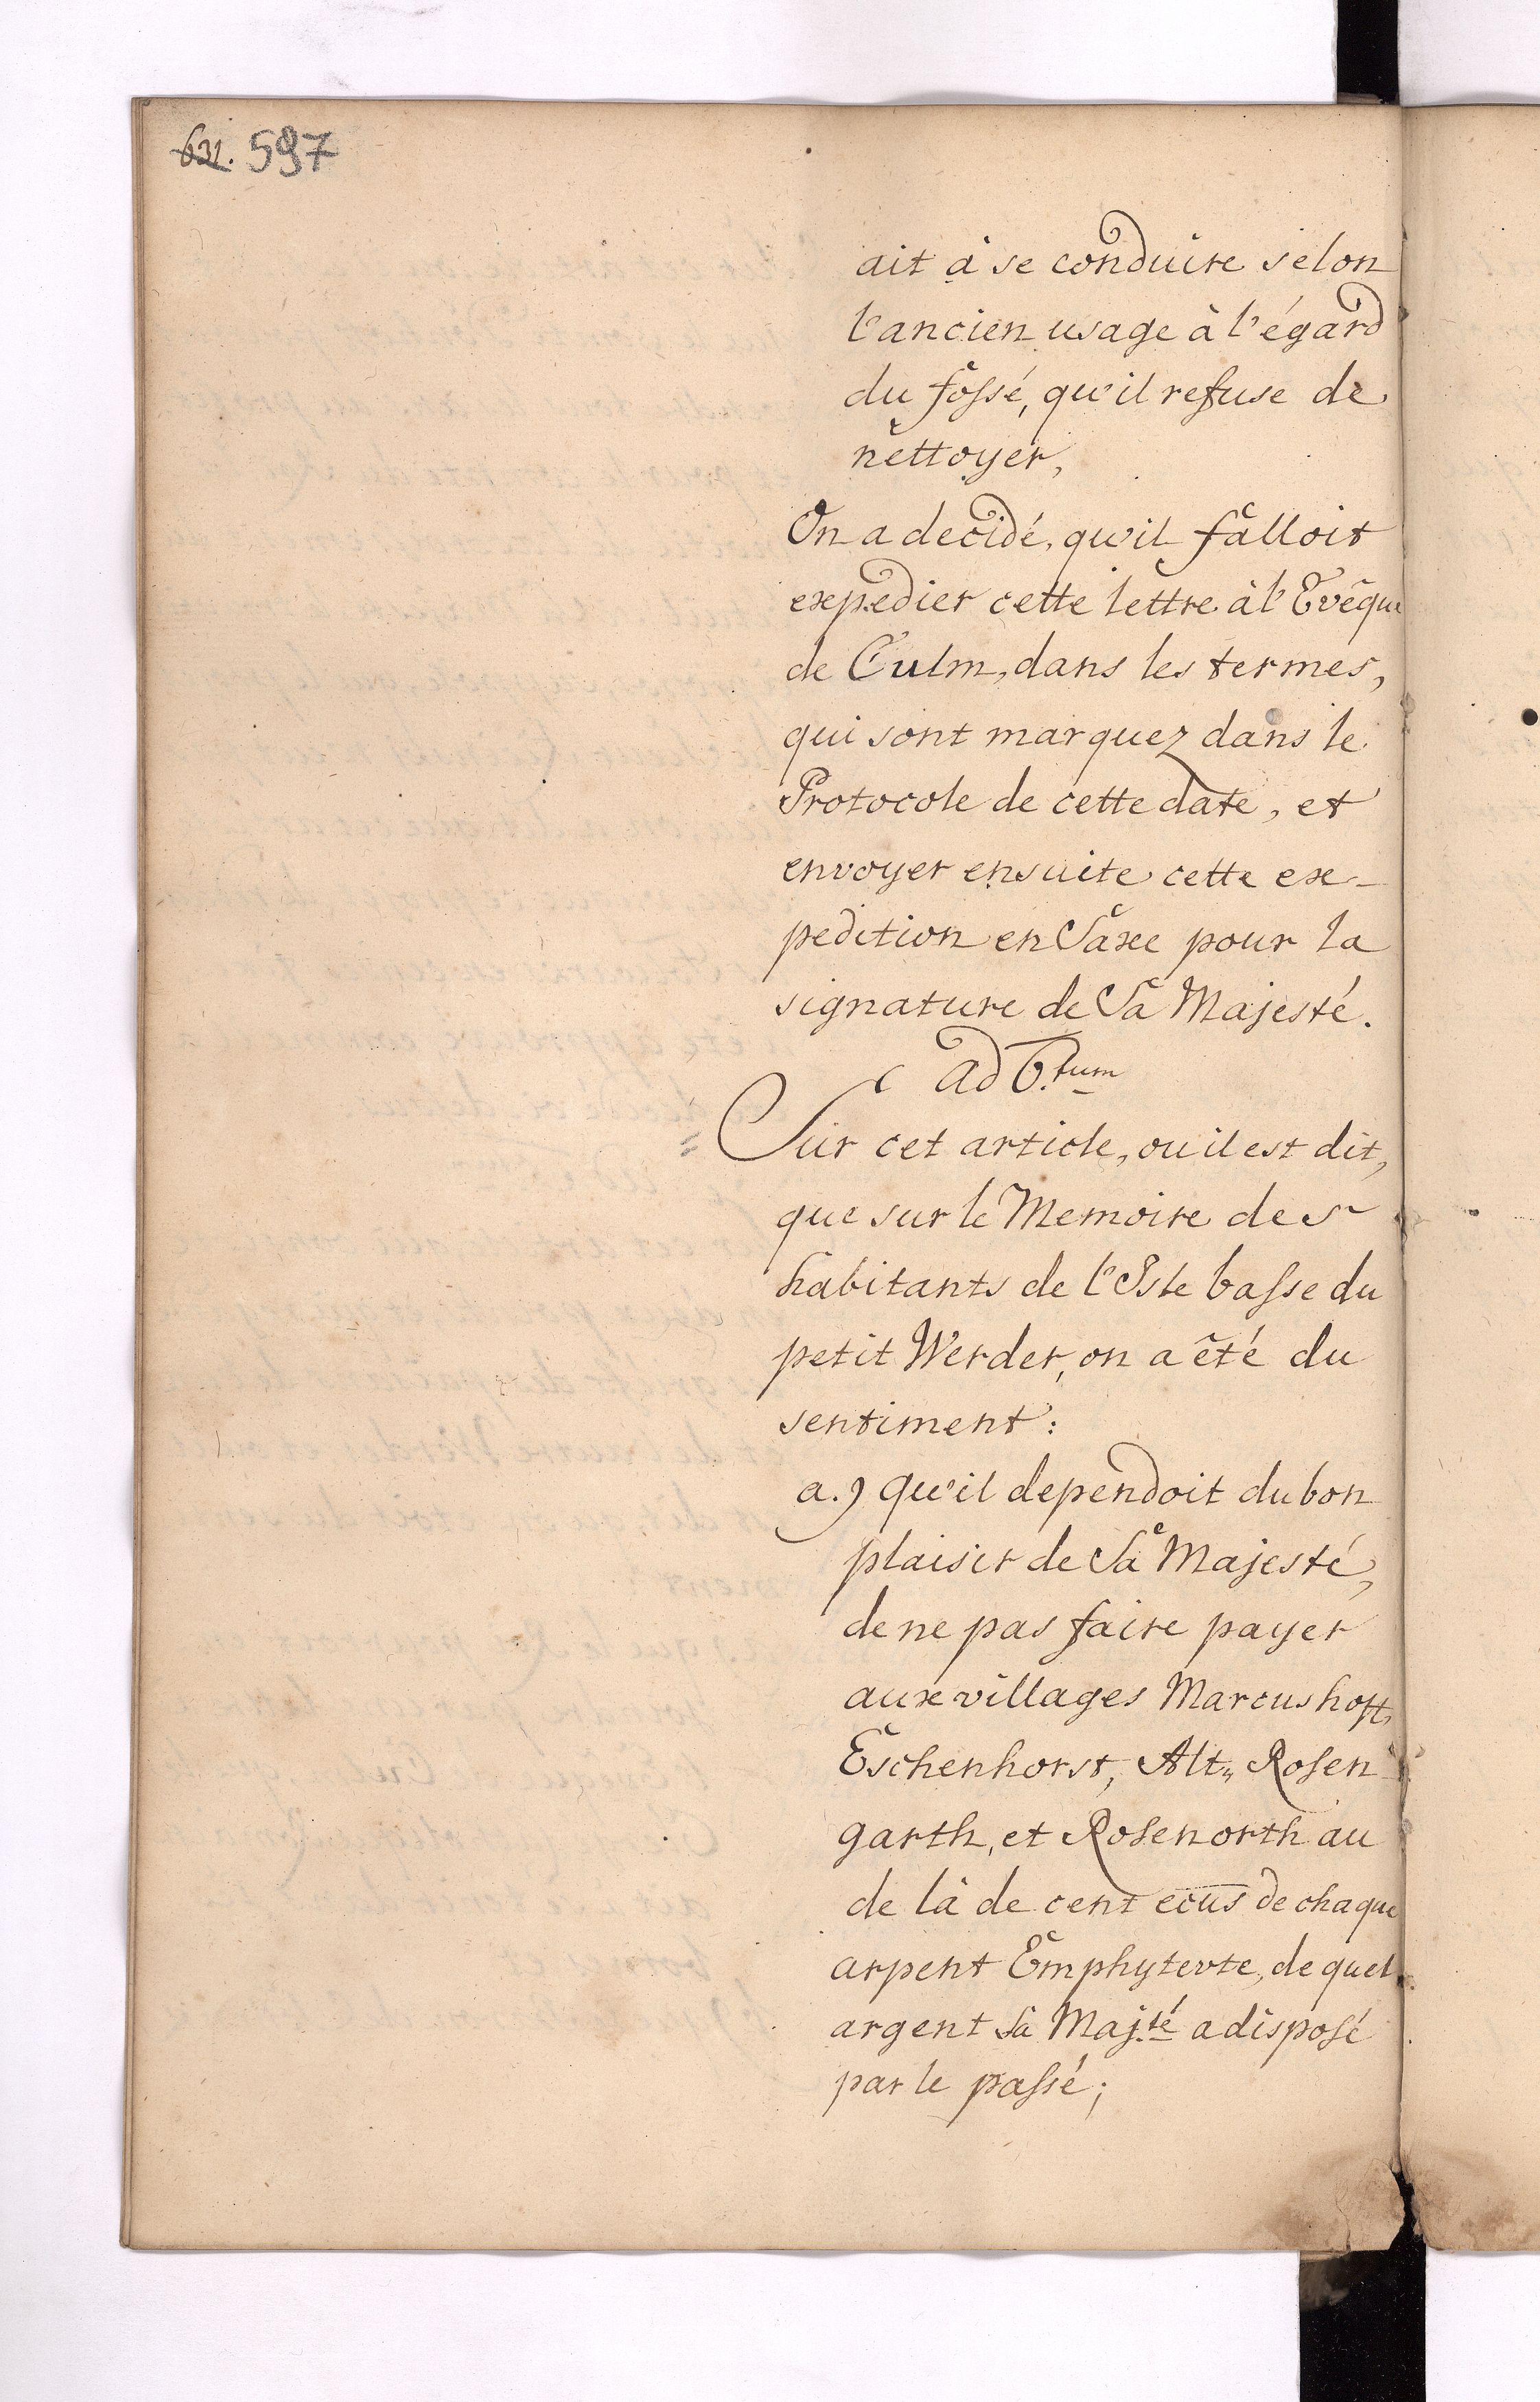 631. 597
ait à se conduire selon
l'ancien usage à l'égard
du fossé, qu'il refuse de
nettoyer,
On a decidé, qu'il falloit
expedier cette lettre à l'Evêque
de Culm, dans les termes,
qui sont marquez dans le
Protocole de cette date, et
envoyer ensuite cette ex-
pedition en Saxe pour la
signature de Sa Majesté.
Ad 6.tum
Sur cet article, ou il est dit,
que sur le Memoire des
habitants de l'Isle basse du
petit Werder, on a été du
sentiment:
a.) qu'il dependoit du bon
plaisir de Sa Majesté,
de ne pas faire payer
aux villages Marcushoff,
Eschenhorst, Alt„ Rosen-
garth, et Rosenorth au
de là de cent ecus de chaque
arpent Emphytevte, de quel
argent Sa Maj.té a disposé
par le passé;